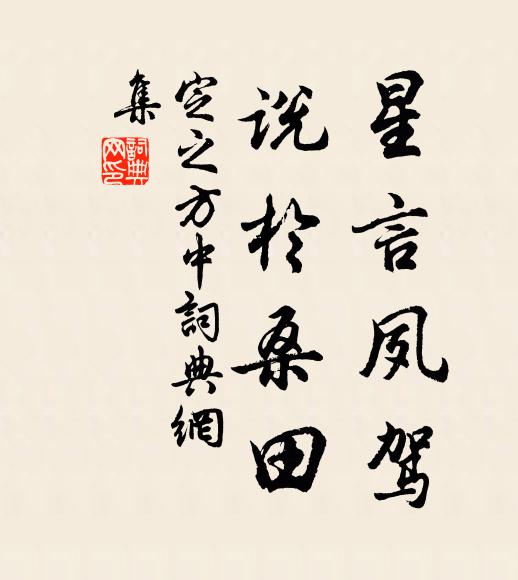 星言夙駕
説於桑田
定之方中詞典網
集
詞典网印